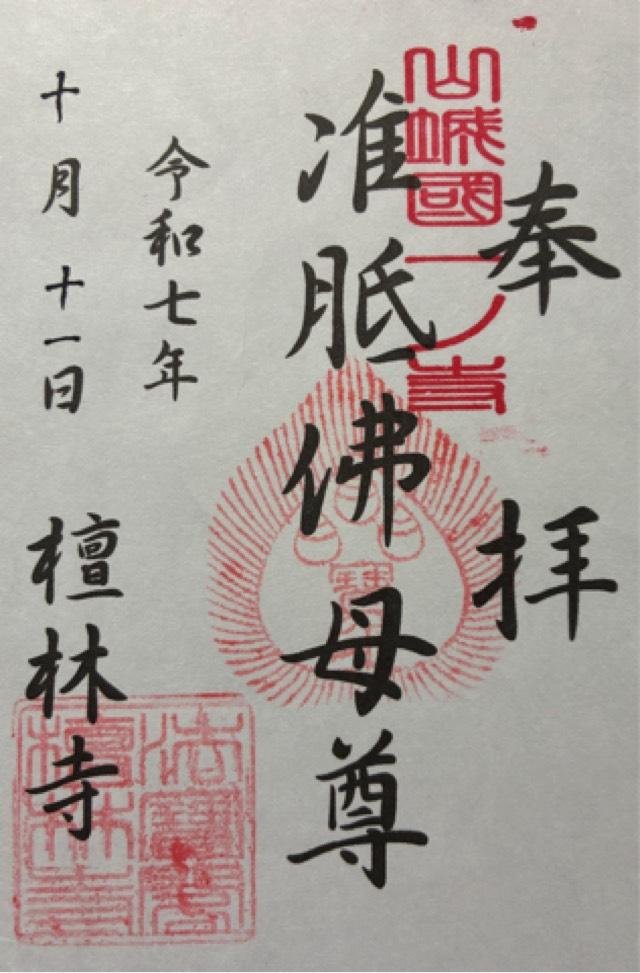 奉拝
山城國一ノ寺
准胝佛母尊
令和七年
十月十一日
檀林寺